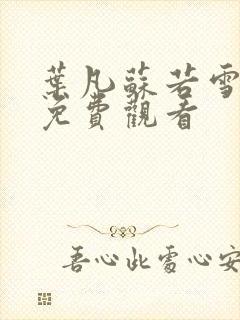 葉凡蘇若雪
免費觀看
吾心此處心安